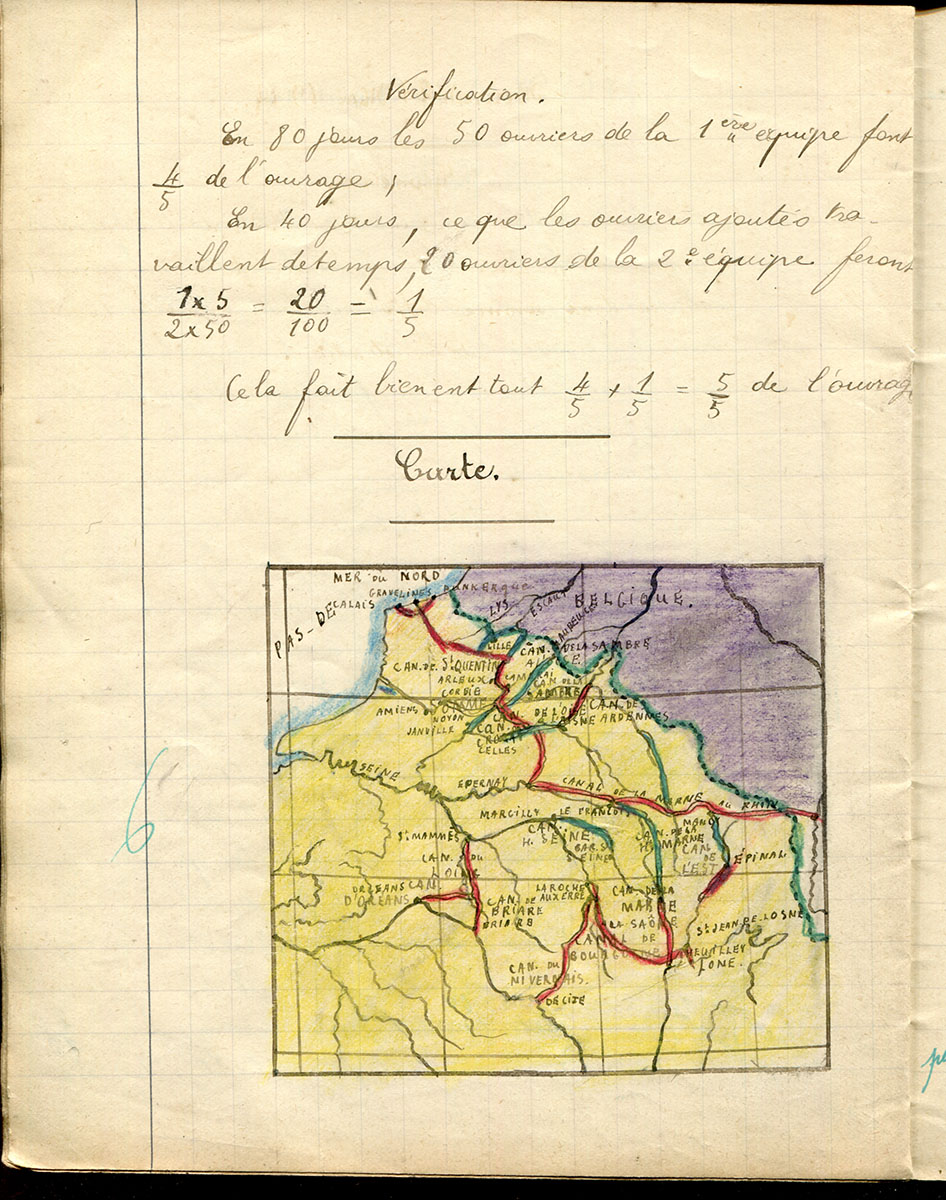 Vérification.
En 80 jours les 50 ouvriers de la 1ère équipe font
4/5 de l'ouvrage ;
En 40 jours, ce que les ouvriers ajoutés tra-
vaillent de temps, 20 ouvriers de la 2e équipe feront
1x5/2x50 = 20/100 = 1/5
Cela fait bien en tout 4/5 + 1/5 = 5/5 de l'ouvrag
Carte.
MER DU NORD
DUNKERQUE
GRAVELINES
CALAIS
PAS-DE
LYS
ESCAUT
BELGIQUE.
MAUBEUGE
LILLE
CAN. DE LA SAMBRE
CAN. DE St QUENTIN
ARLEUX
CORBIE
CAN. DE LA
SAMBRE
AMIENS
SOMME
NOYON
JANVILLE
CAN.
DE L'OISE
AISNE
CAN. DES
ARDENNES
SEINE
EPERNAY
CANAL DE LA MARNE AU RHIN
MARCILLY
St MAMMÈS
CAN.
H. SEINE
BAR.S.
SEINE
CAN. DE LA
H. MARNE
CAN.
DE
L'EST
ÉPINAL
CAN. DU
LOING
ORLÉANS
CAN.
D'ORLEANS
CAN. DE
BRIARE
BRIARE
LAROCHE
AUXERRE
CAN. DE LA
MARNE
À LA SAÔNE
CANAL DE
BOURGOGNE
St JEAN-DE-LOSNE
HEUILLEY
CAN. DU
NIVERNAIS.
DECIZE
6